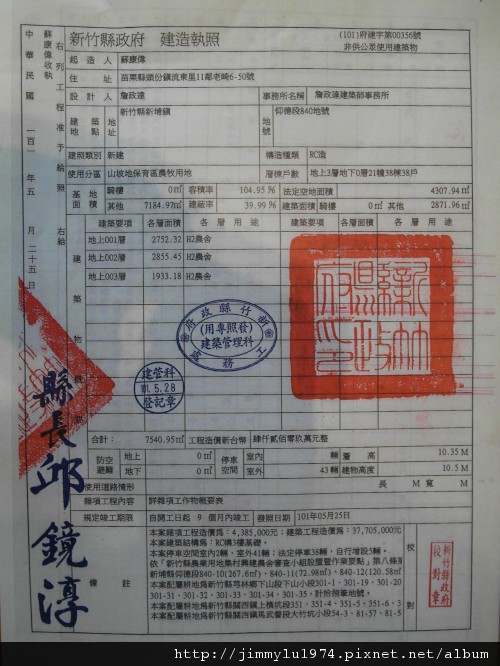 新竹縣政府 建造執照
(101)府建字第00356號
非供公眾使用建築物
起造人 蘇康偉
住址 苗栗縣頭份鎮流東里11鄰老崎6-50號
設計人 詹政達 事務所名稱 詹政達建築師事務所
建築地點 地址 新竹縣新埔鎮 地號 仰德段840地號
建照類別 新建 構造種類 RC造
使用分區 山坡地保育區農牧用地 層棟戶數 地上3層地下0層21幢38棟38戶
基地面積 騎樓 0㎡ 容積率 104.95 % 法定空地面積 4307.94㎡
其他 7184.97㎡ 建蔽率 39.99 % 建築面積 騎樓 0㎡ 其他 2871.96㎡
建築要項 各層面積 各層用途 建築要項 各層面積 各層用途
地上001層 2752.32 H2農舍
地上002層 2855.45 H2農舍
地上003層 1933.18 H2農舍
建築物概要
新竹縣政府
(用專照發)
建築管理科
工務處
建管科
101.5.28
登記章
新竹縣政府印
合計: 7540.95㎡ 工程造價新台幣 肆仟貳佰零玖萬元整
防空避難 地上 0㎡ 停車空間 室內 輛 層高 10.35 M
地下 0㎡ 室外 43輛 建物高度 10.5 M
使用道路情形 長 M 寬 M
雜項工程內容 詳雜項工作物概要表
規定竣工期限 自開工日起 9 個月內竣工 發照日期 101年05月25日
備註
本案雜項工程造價為:4,385,000元;建築工程造價為:37,705,000元
本案建築結構為:RC構3樓基礎.
本案停車空間室內2輛,室外41輛;法定停車38輛,自行增設5輛.
依「新竹縣農業用地集村興建農舍審查小組設置暨作業要點」第八條
新埔鎮仰德段840-10(267.6㎡)、840-11(72.98㎡)、840-12(120.58㎡
本案配屬耕地為新竹縣芎林鄉下山段下山小段301-1、301-19、301-20
301-31、301-32、301-33、301-34、301-35, 計拾捌筆地號.
本案配屬耕地為新竹縣關西鎮上橫坑段351、351-4、351-5、351-6、3
本案配屬耕地為新竹縣關西鎮馬武督段大竹坑小段54-3、81-57、81-5
校對
新竹縣政府
校對章
右列工程准予給照
右給
蘇康偉收執
中華民國一百○一年五月二十五日
縣長 邱鏡淳
http://jimmylu1974.pixnet.net/album